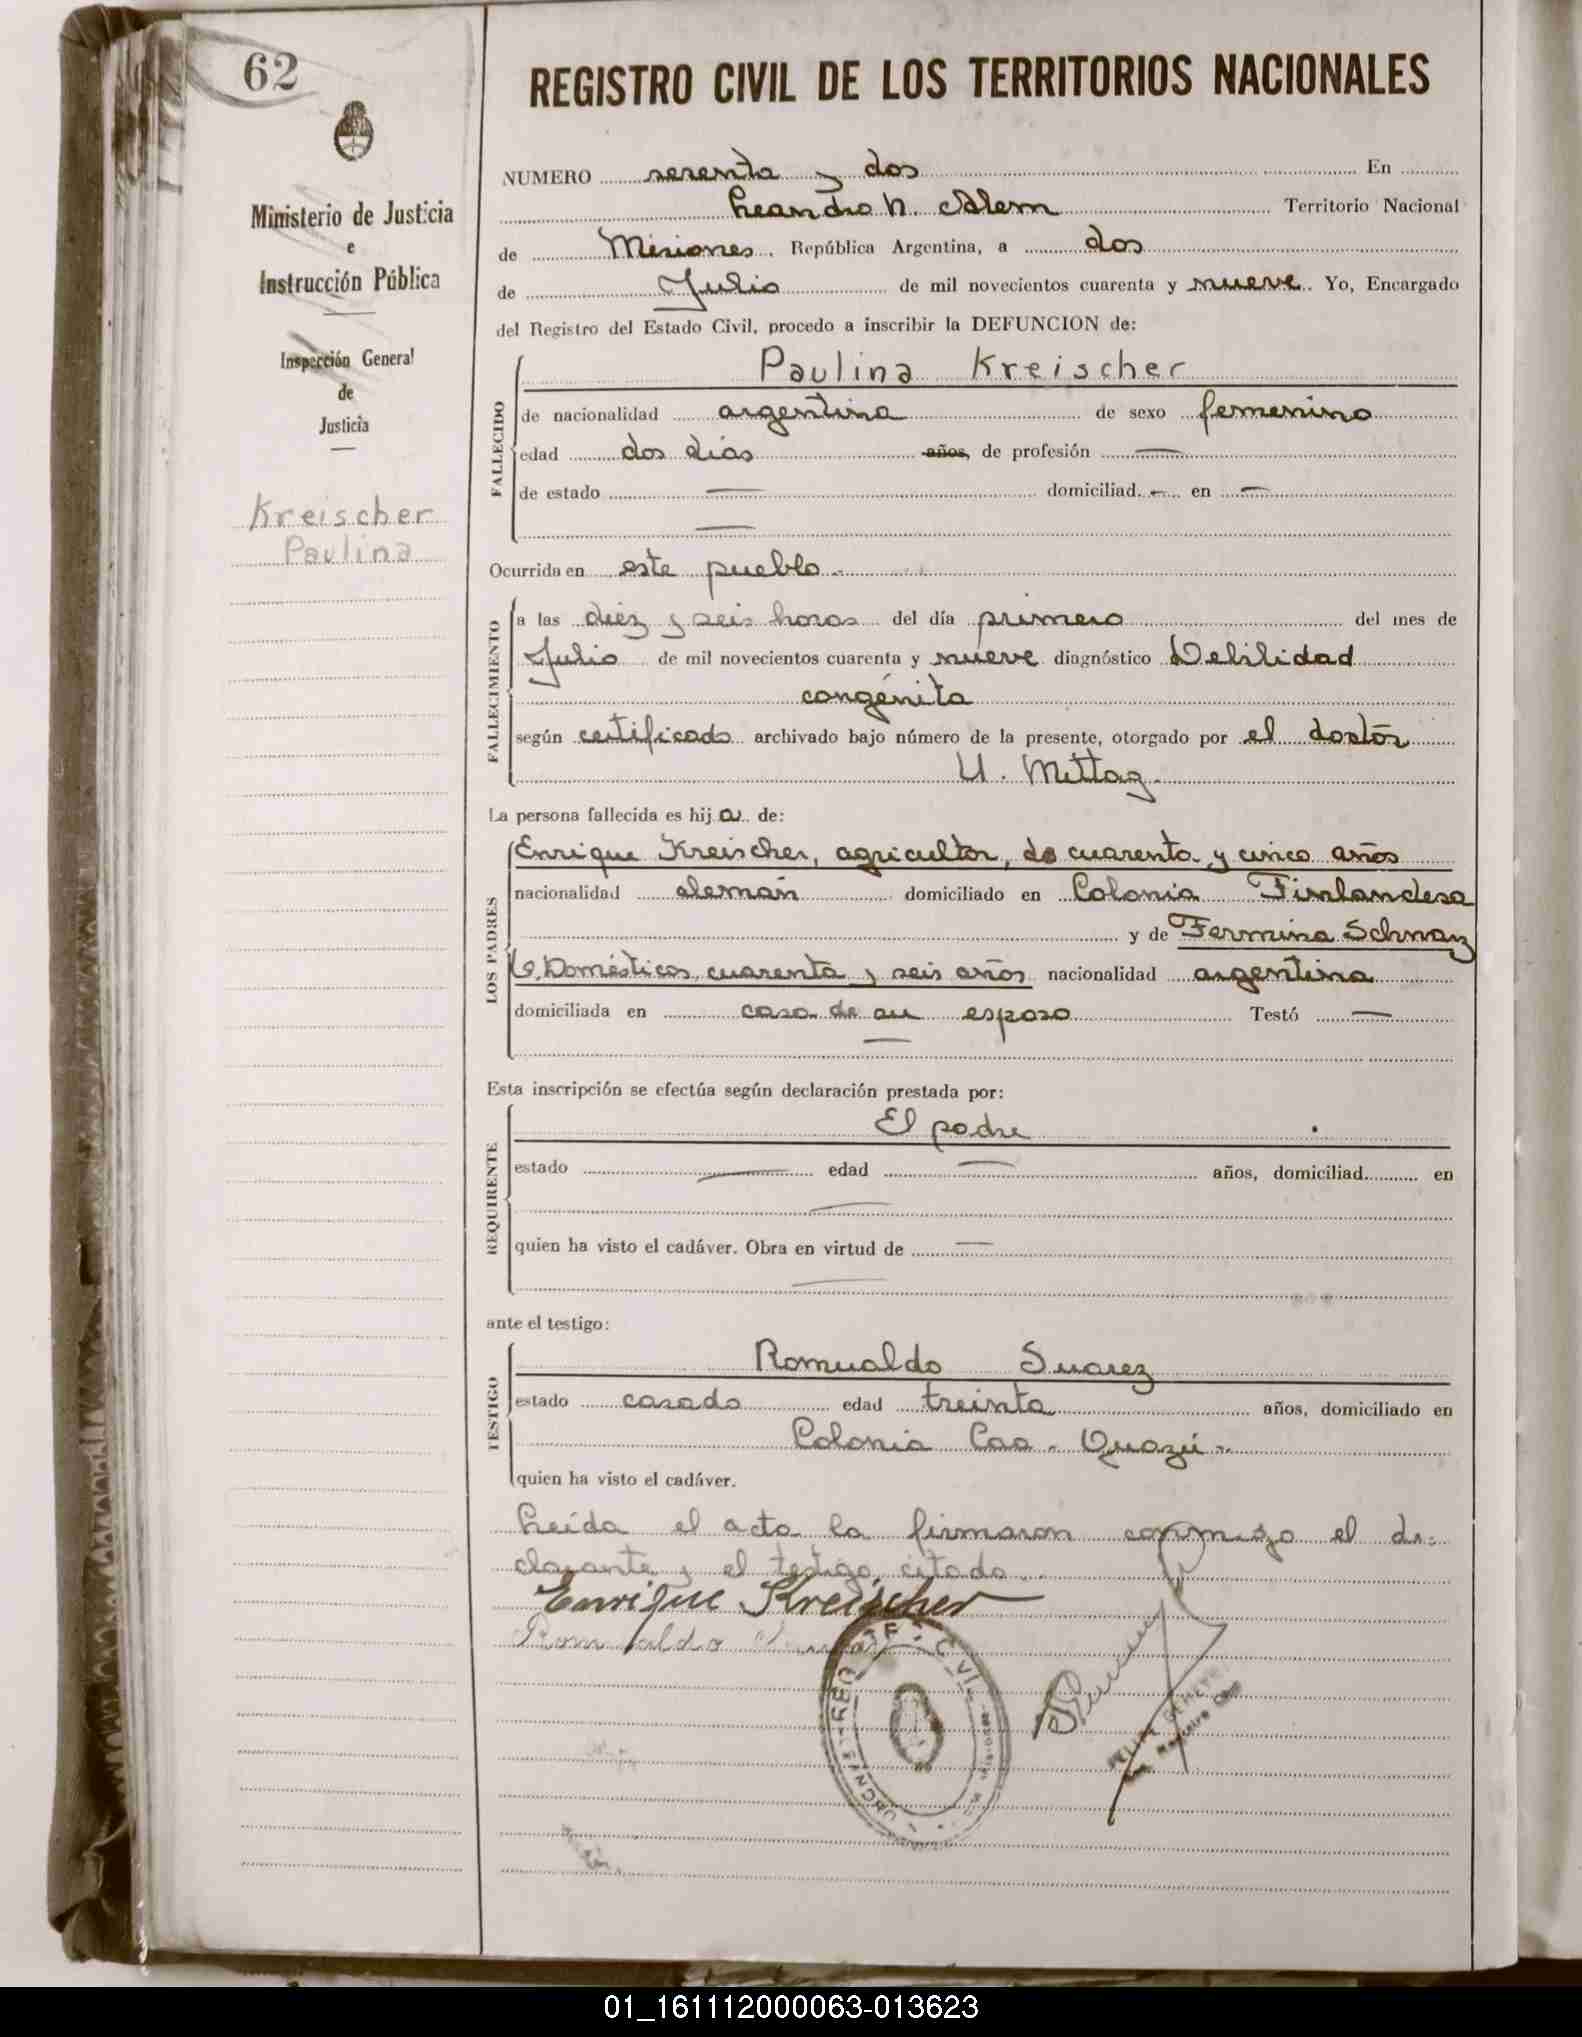 62
Ministerio de Justicia
e
Instrucción Pública
Inspección General
de
Justicia
Kreischer
Paulina
REGISTRO CIVIL DE LOS TERRITORIOS NACIONALES
NUMERO sesenta y dos En
Leandro N. Alem Territorio Nacional
de Misiones, República Argentina, a dos
de Julio de mil novecientos cuarenta y nueve. Yo, Encargado
del Registro del Estado Civil, procedo a inscribir la DEFUNCION de:
FALLECIDO
Paulina Kreischer
de nacionalidad argentina de sexo femenino
edad dos dias años, de profesión —
de estado — domiciliad — en —
—
Ocurrida en este pueblo.
FALLECIMIENTO
a las diez y seis horas del día primero del mes de
Julio de mil novecientos cuarenta y nueve diagnóstico Debilidad
congénita
según certificado archivado bajo número de la presente, otorgado por el doctor
U. Mittag.
La persona fallecida es hij a de:
LOS PADRES
Enrique Kreischer, agricultor, de cuarenta y cinco años
nacionalidad alemán domiciliado en Colonia Finlandesa
y de Fermina Schnarz
Q. Domésticos, cuarenta y seis años nacionalidad argentina
domiciliada en casa de su esposo Testó —
—
Esta inscripción se efectúa según declaración prestada por:
REQUIRENTE
El padre
estado — edad — años, domiciliad en
—
quien ha visto el cadáver. Obra en virtud de —
—
ante el testigo:
TESTIGO
Romualdo Suarez
estado casado edad treinta años, domiciliado en
Colonia Caa-Guazú.
quien ha visto el cadáver.
Leída el acta la firmaron conmigo el de-
clarante y el testigo citado.
Enrique Kreischer
Romualdo
FELIPE
01_161112000063-013623